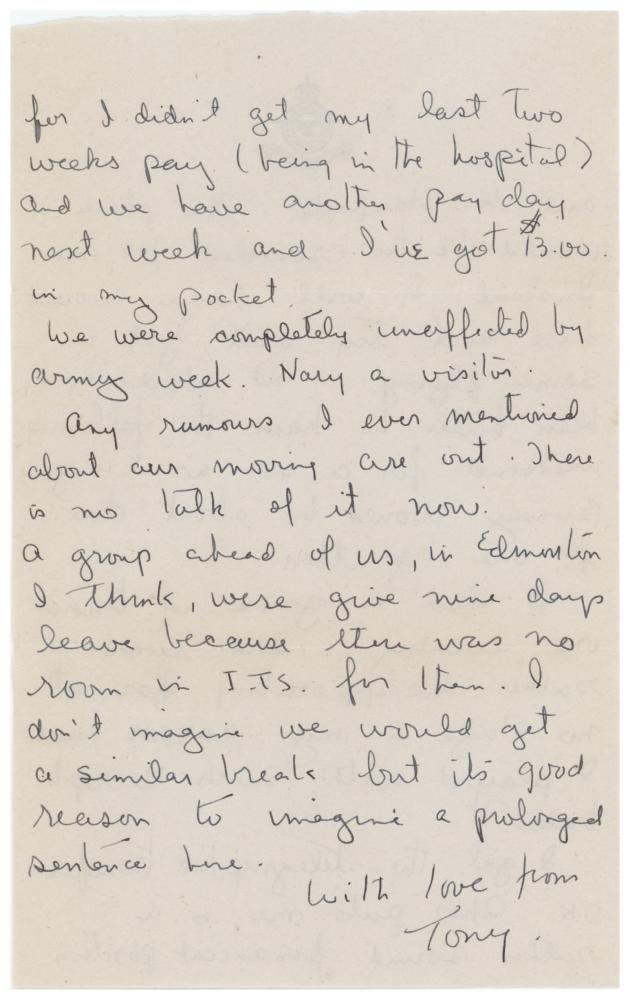 for I didn't get my last two
weeks pay (being in the hospital)
and we have another pay day
next week and I've got $13.00.
in my pocket.
We were completely uneffected by
army week. Nary a visitor.
Any rumours I ever mentioned
about our moving are out. There
is no talk of it now.
A group ahead of us, in Edmonton
I think, were give nine days
leave because there was no
room in ITS. for them. I
don't imagine we would get
a similar break but its good
reason to imagine a prolonged
sentence here.
With love from
Tony.